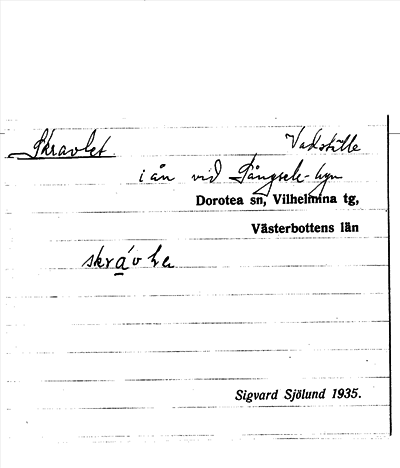 Skravlet. Vadställe
i ån vid Långsele-byn
Dorotea sn, Vilhelmina tg,
Västerbottens län
Sigvard Sjölund 1935.